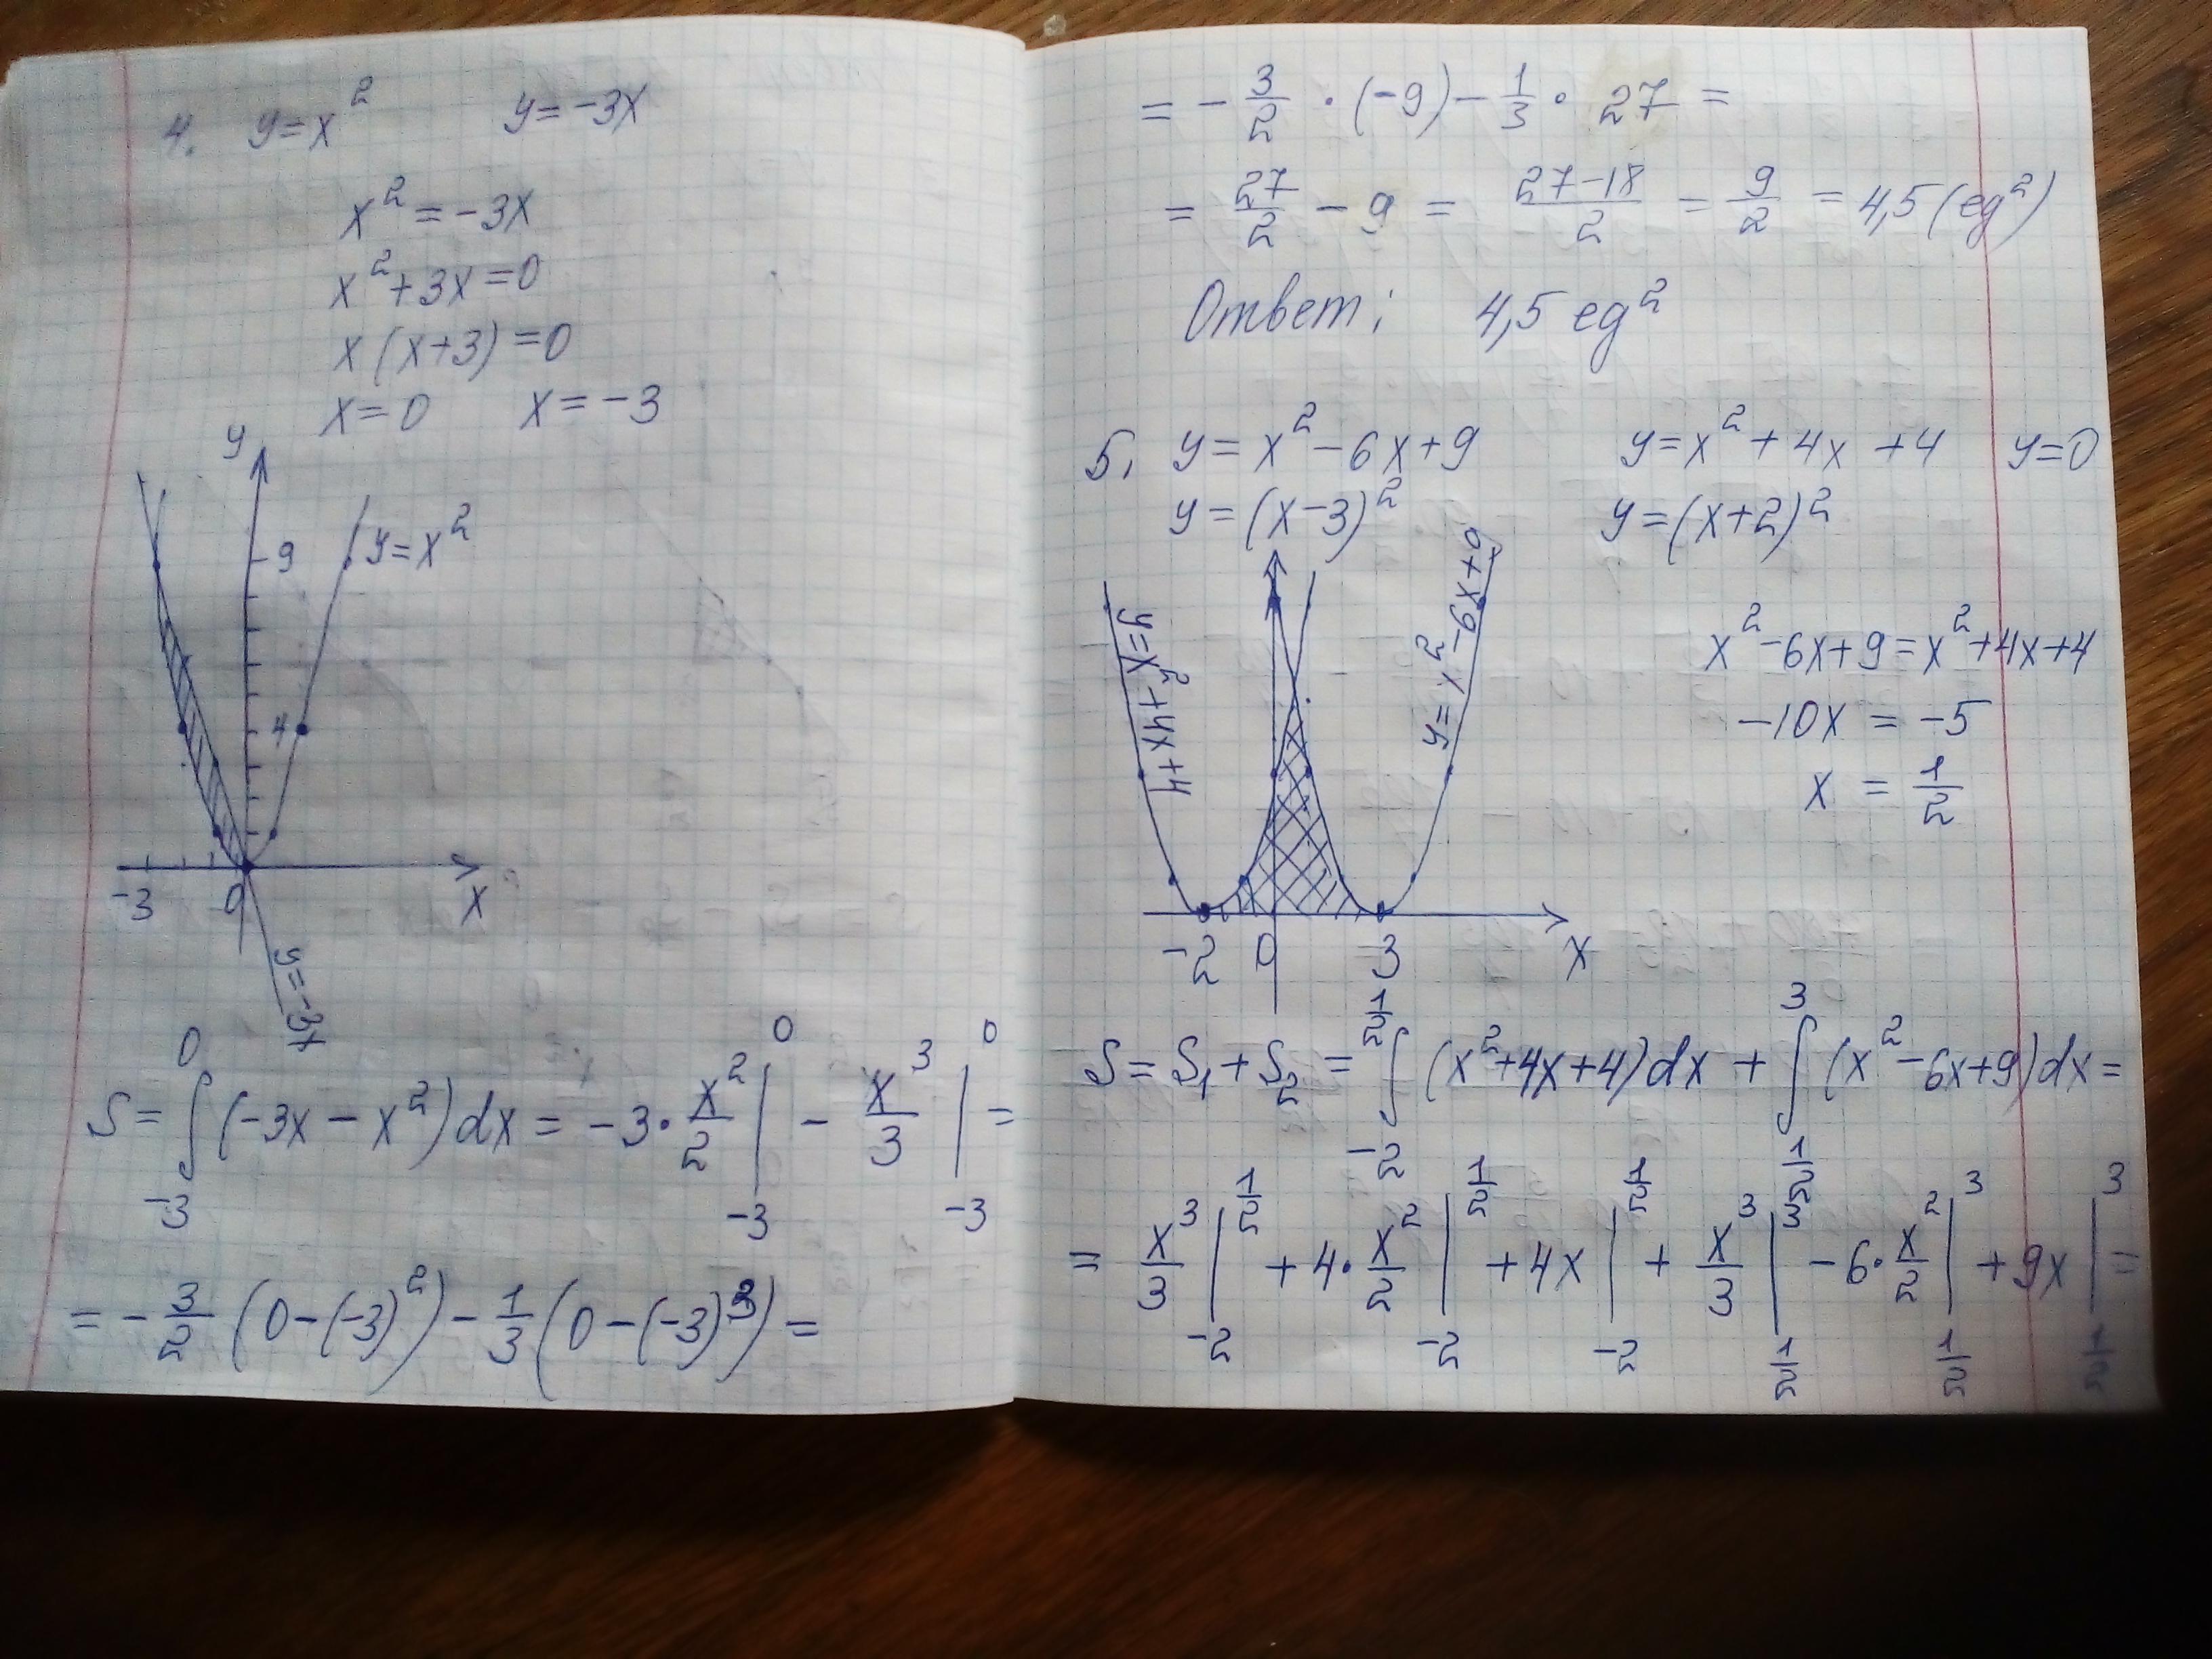 4. y=x² y=-3x
x²=-3x
x²+3x=0
x(x+3)=0
x=0 x=-3
y
9
y=x²
4
-3 0 x
y=-3x
S=∫₋₃⁰(-3x-x²)dx=-3·x²/2|₋₃⁰-x³/3|₋₃⁰=
=-3/2(0-(-3)²)-1/3(0-(-3)³)=
=-3/2·(-9)-1/3·27=
=27/2-9=(27-18)/2=9/2=4,5(ед²)
Ответ: 4,5 ед²
5. y=x²-6x+9 y=x²+4x+4 y=0
y=(x-3)² y=(x+2)²
y=x²+4x+4
y=x²-6x+9
x²-6x+9=x²+4x+4
-10x=-5
x=1/2
-2 0 3 x
S=S₁+S₂=∫₋₂^(1/2)(x²+4x+4)dx+∫_(1/2)^3(x²-6x+9)dx=
=x³/3|₋₂^(1/2)+4·x²/2|₋₂^(1/2)+4x|₋₂^(1/2)+x³/3|_(1/2)^3-6·x²/2|_(1/2)^3+9x|_(1/2)^3=